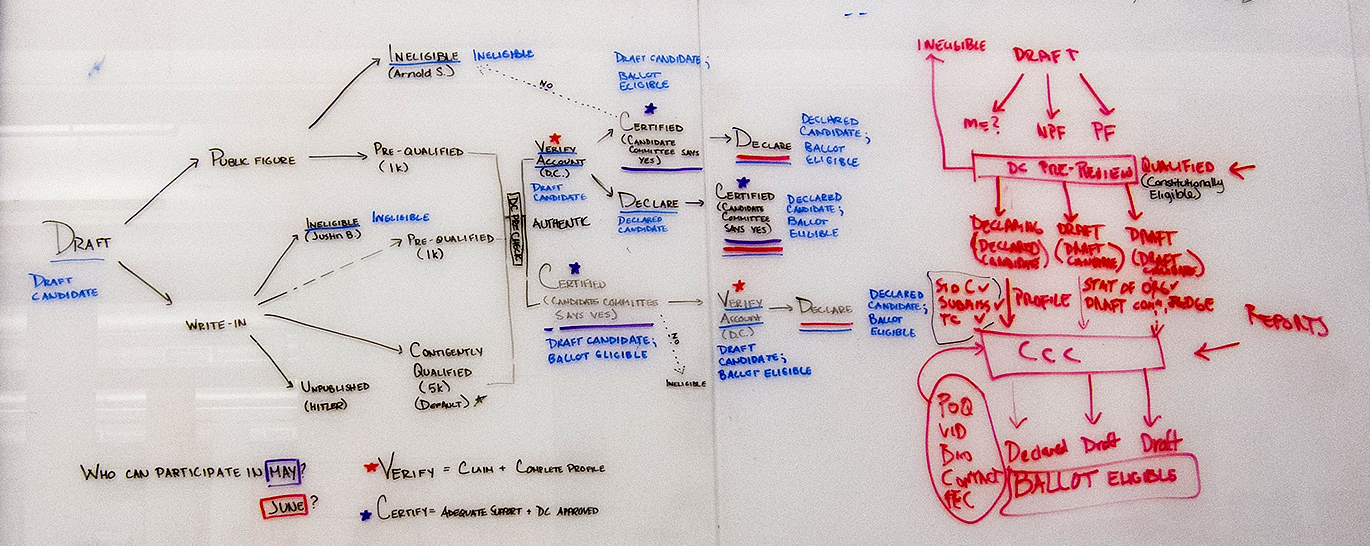 INELIGIBLE INELIGIBLE
(Arnold S.)
NO
DRAFT CANDIDATE;
BALLOT
ELIGIBLE
CERTIFIED
(CANDIDATE
COMMITTEE SAYS
YES)
DECLARE
DECLARED
CANDIDATE;
BALLOT
ELIGIBLE
PUBLIC FIGURE
PRE-QUALIFIED
(1K)
VERIFY
ACCOUNT
(D.C.)
DRAFT
CANDIDATE
AUTHENTIC
DECLARE
DECLARED
CANDIDATE
CERTIFIED
(CANDIDATE
COMMITTEE
SAYS YES)
DECLARED
CANDIDATE;
BALLOT
ELIGIBLE
DRAFT
DRAFT
CANDIDATE
INELIGIBLE INELIGIBLE
(Justin B.)
PRE-QUALIFIED
(1K)
WRITE-IN
CONTIGENTLY
QUALIFIED
(5K)
(DEFAULT)
UNPUBLISHED
(HITLER)
CERTIFIED
(CANDIDATE COMMITTEE
SAYS YES)
DRAFT CANDIDATE;
BALLOT ELIGIBLE
NO
INELIGIBLE
VERIFY
ACCOUNT
(D.C.)
DRAFT
CANDIDATE;
BALLOT ELIGIBLE
DECLARE
DECLARED
CANDIDATE;
BALLOT
ELIGIBLE
WHO CAN PARTICIPATE IN MAY?
JUNE?
VERIFY = CLAIM + COMPLETE PROFILE
CERTIFY = ADEQUATE SUPPORT + DC APPROVED
INELIGIBLE
DRAFT
ME? NPF PF
DC PRE-REVIEW
QUALIFIED
(Constitutionally
Eligible)
DECLARING DRAFT DRAFT
(DECLARED (DRAFT (DRAFT
CANDIDATE) CANDIDATE) CANDIDATE)
S TO C
SUBMISS
TC
PROFILE
STAT OF ORG
DRAFT COM, PLEDGE
REPORTS
CCC
POQ
VID
BIO
CONTACT
FEC
Declared Draft Draft
BALLOT ELIGIBLE